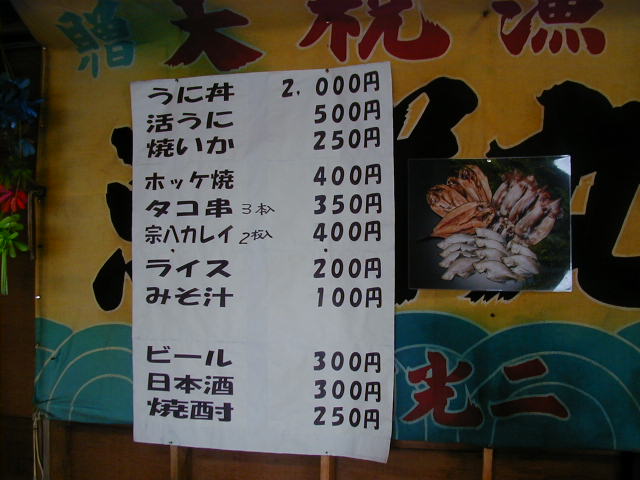 贈
大祝漁
うに丼 2,000円
活うに 500円
焼いか 250円
ホッケ焼 400円
タコ串 3本 350円
宗八カレイ 2枚入 400円
ライス 200円
みそ汁 100円
ビール 300円
日本酒 300円
焼酎 250円
光二